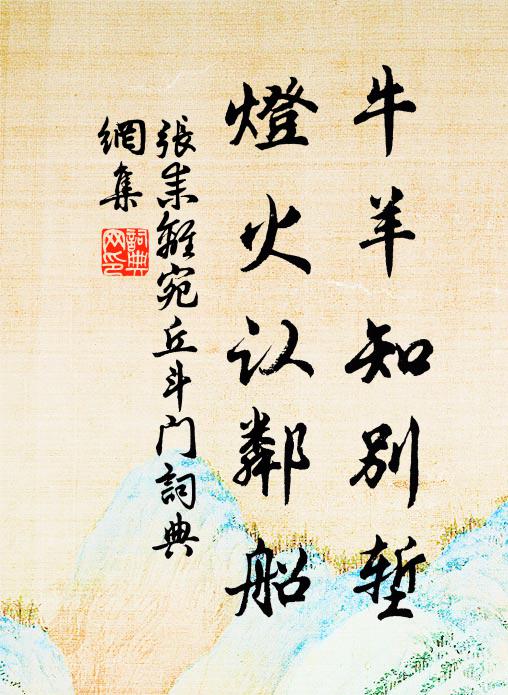 牛羊知别堑
燈火认鄰船
張耒離宛丘斗门詞典
網集
詞典
网印